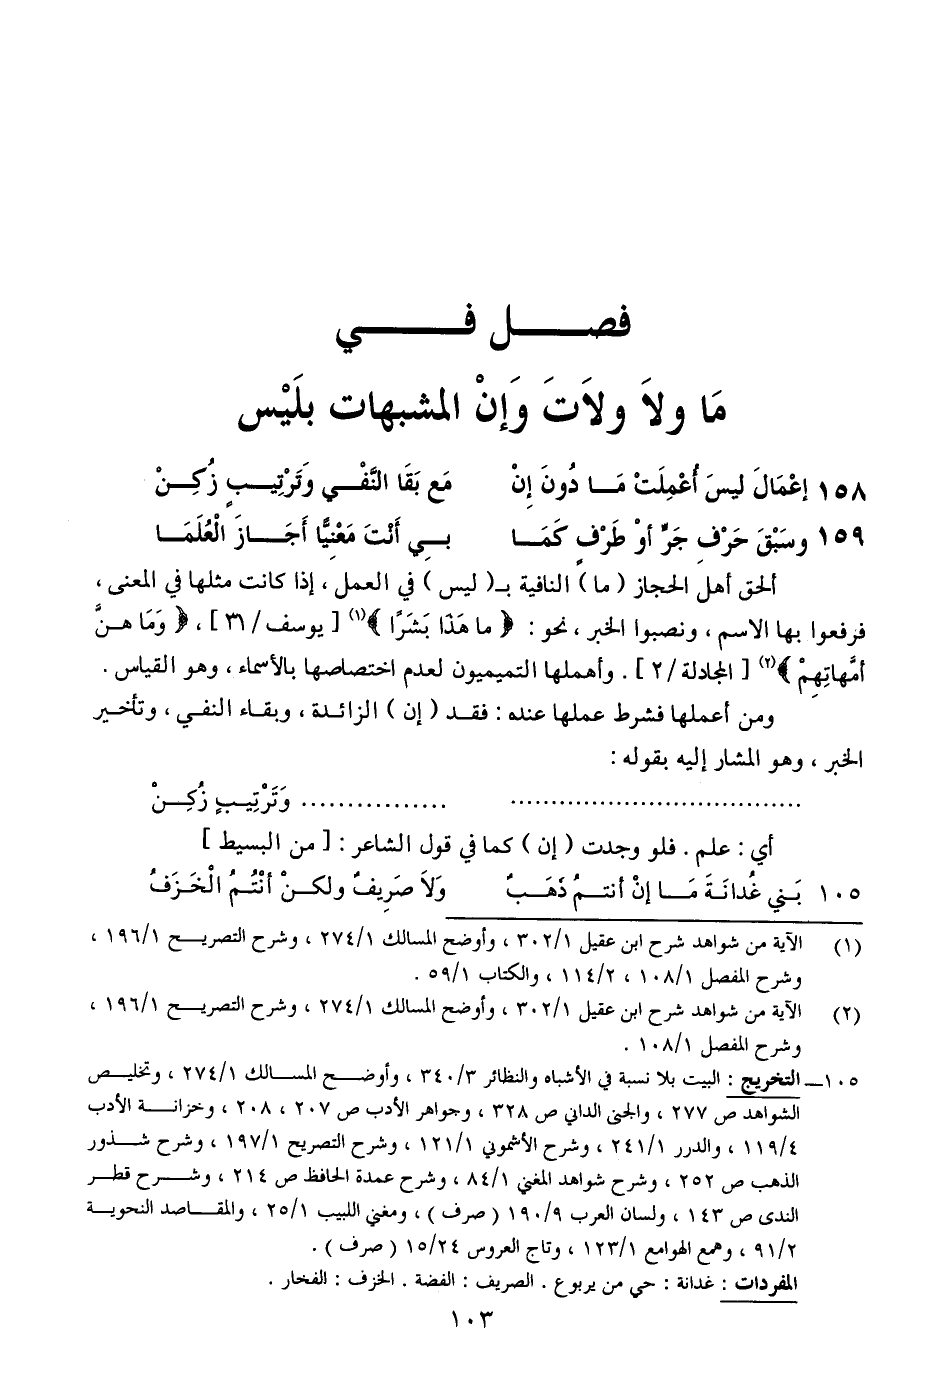 فصل في
مَا ولاَ ولاَتَ وَإنْ المشبهات بلَيْس
١٥٨ إعْمَالَ ليسَ أُعْمِلَتْ مَا دُونَ إنْ مَع بَقَا النَّفْي وتَرْتِيبٍ زُكِنْ
١٥٩ وسَبْقَ حَرْفِ جَرٍّ أوْ ظَرْفٍ كَمَا بي أَنْتَ مَعْنِيًّا أَجَازَ الْعُلَمَا
ألحق أهل الحجاز ( ما ) النافية بـ( ليس ) في العمل ، إذا كانت مثلها في المعنى ،
فرفعوا بها الاسم ، ونصبوا الخبر ، نحو : ﴿ ما هَذَا بَشَرًا ﴾(١) [ يوسف / ٣١ ] ، ﴿ وَمَا هنَّ
أمَّهاتِهِمْ ﴾(٢) [ المجادلة / ٢ ] . وأهملها التميميون لعدم اختصاصها بالأسماء ، وهو القياس .
ومن أعملها فشرط عملها عنده : فقد ( إن ) الزائدة ، وبقاء النفي ، وتأخير
الخبر ، وهو المشار إليه بقوله :
.................................... ................ وَتَرْتِيبٍ زُكِنْ
أي : علم . فلو وجدت ( إن ) كما في قول الشاعر : [ من البسيط ]
١٠٥ بَني غُدانَةَ مَا إنْ أنتمُ ذَهَبٌ وَلاَ صَريفٌ ولكنْ أنْتُمُ الْخَزَفُ
(١) الآية من شواهد شرح ابن عقيل ٣٠٢/١ ، وأوضح المسالك ٢٧٤/١ ، وشرح التصريح ١٩٦/١ ،
وشرح المفصل ١٠٨/١ ، ١١٤/٢ ، والكتاب ٥٩/١ .
(٢) الآية من شواهد شرح ابن عقيل ٣٠٢/١ ، وأوضح المسالك ٢٧٤/١ ، وشرح التصريح ١٩٦/١ ،
وشرح المفصل ١٠٨/١ .
١٠٥ــ التخريج : البيت بلا نسبة في الأشباه والنظائر ٣٤٠/٣ ، وأوضح المسالك ٢٧٤/١ ، وتخليص
الشواهد ص ٢٧٧ ، والجنى الداني ص ٣٢٨ ، وجواهر الأدب ص ٢٠٧ ، ٢٠٨ ، وخزانة الأدب
١١٩/٤ ، والدرر ٢٤١/١ ، وشرح الأشموني ١٢١/١ ، وشرح التصريح ١٩٧/١ ، وشرح شذور
الذهب ص ٢٥٢ ، وشرح شواهد المغني ٨٤/١ ، وشرح عمدة الحافظ ص ٢١٤ ، وشرح قطر
الندى ص ١٤٣ ، ولسان العرب ١٩٠/٩ ( صرف ) ، ومغني اللبيب ٢٥/١ ، والمقاصد النحوية
٩١/٢ ، وهمع الهوامع ١٢٣/١ ، وتاج العروس ١٥/٢٤ ( صرف ) .
المفردات : غدانة : حي من يربوع . الصريف : الفضة . الخزف : الفخار .
١٠٣